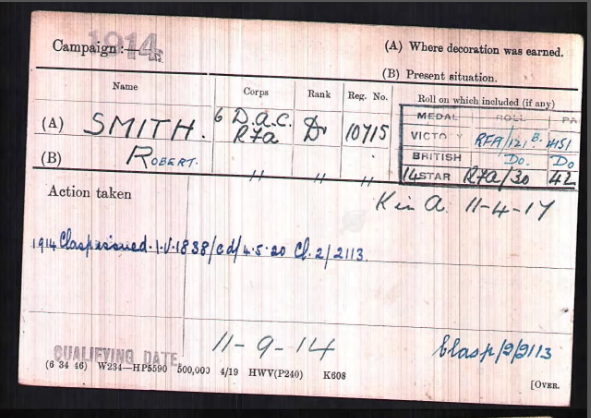 Campaign :— 1914
(A) Where decoration was earned.
(B) Present situation.
Name Corps Rank Reg. No. Roll on which included (if any)
MEDAL ROLL PA
(A) SMITH. 6 D.A.C. RFA Dr 10715
VICTO Y RFA/121 B. 4151
BRITISH Do. Do
(B) ROBERT. " " "
14 STAR RFA/30 42
Action taken
K in A. 11-4-17
1914 Clasp issued. I.V. 1838/Cd/4.5.20 Cl. 2/2113.
QUALIFYING DATE 11-9-14
Clasp/2/2113
(6 34 46) W234—HP5590 500,000 4/19 HWV(P240) K608
[OVER.